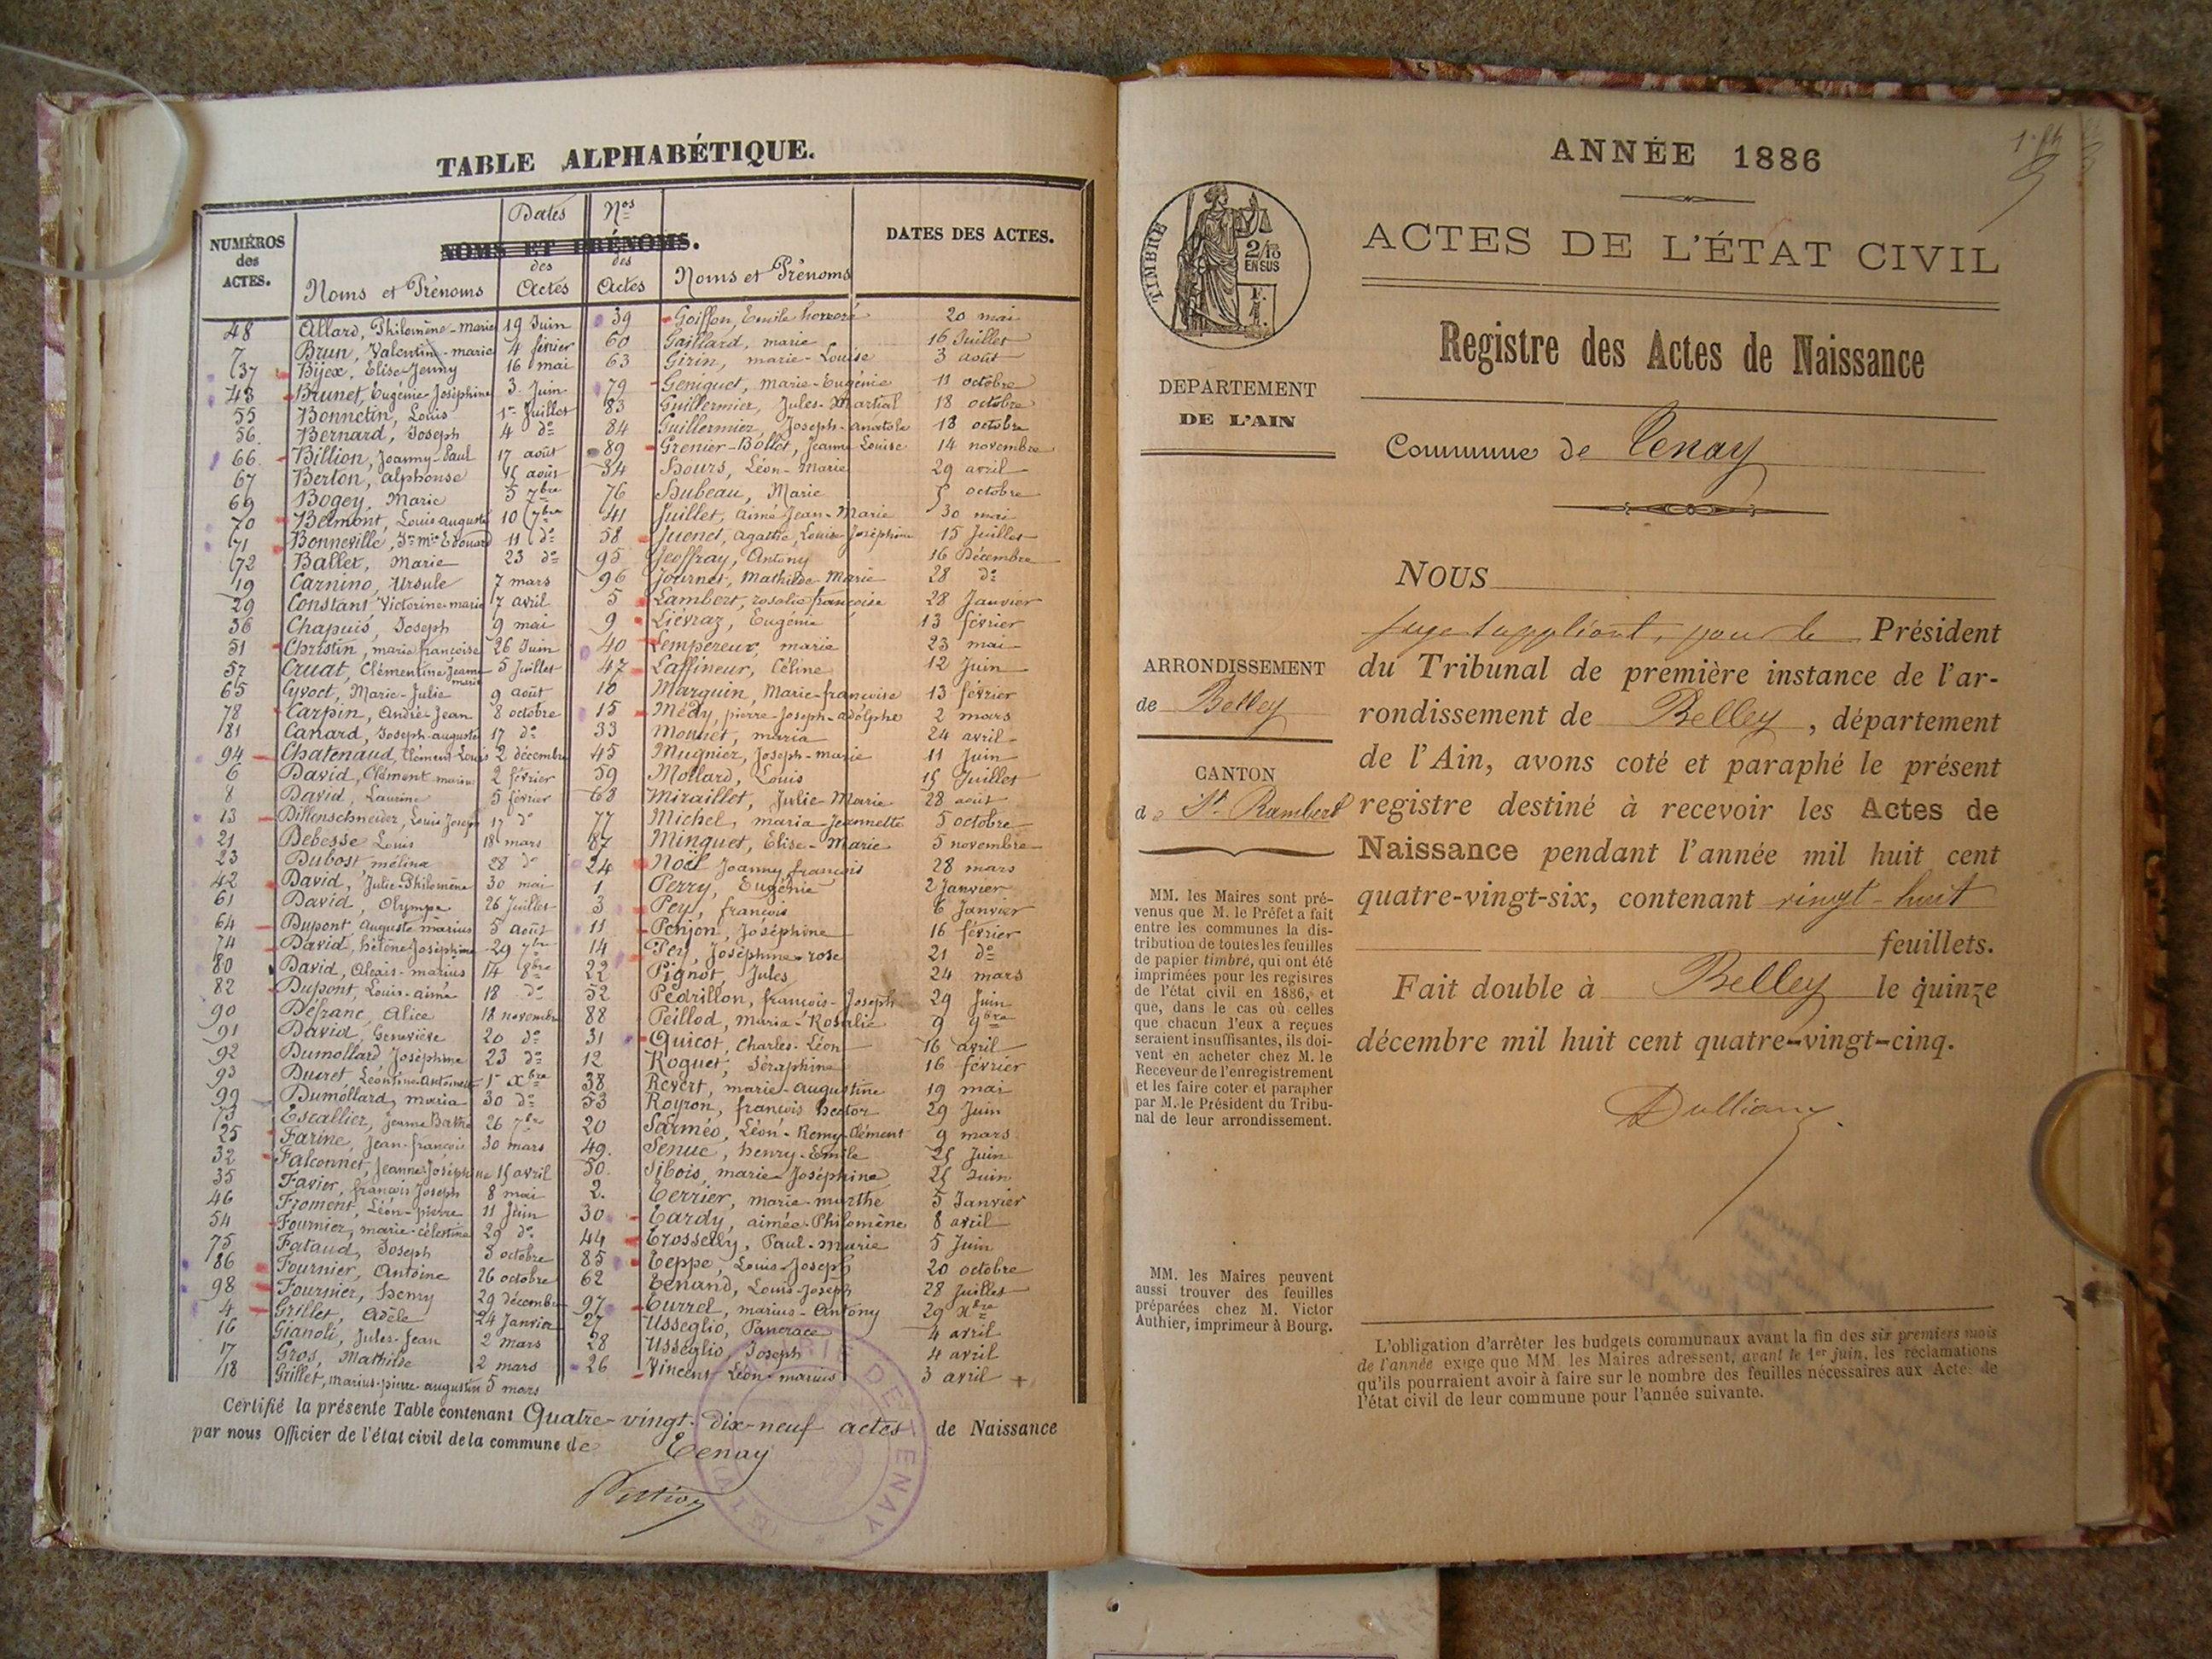 TABLE ALPHABÉTIQUE.
NUMÉROS des ACTES.
NOMS ET PRÉNOMS.
Noms et Prénoms
Dates des Actes
Nos des Actes
Noms et Prénoms
DATES DES ACTES.
48 Allard, Philomène-Marie 19 Juin
7 Brun, Valentine-marie 4 février
37 Bijex, Elise-Jenny 16 mai
43 Brunet, Eugénie-Joséphine 3 Juin
55 Bonnetin, Louis 1er Juillet
56 Bernard, Joseph 4 do
66 Billion, Joanny-Paul 17 août
67 Berton, alphonse août
69 Bogey, Marie 5 7bre
70 Belmont, Louis auguste 10 7bre
71 Bonneville, Edouard 11 do
72 Ballet, Marie 23 do
19 Carnino, Ursule 7 mars
29 Constant Victorine-marie 7 avril
36 Chapuis, Joseph 9 mai
51 Christin, marie françoise 26 Juin
57 Cruat, Clémentine Jeanne marie 5 Juillet
65 Cyvoct, Marie-Julie 9 août
78 Carpin, André-Jean 8 octobre
81 Canard, Joseph-auguste 17 do
94 Chatenaud, Clément-Louis 2 décembre
6 David, Clément 2 février
8 David, Laurine 5 février
13 Dillenschneider, Louis Joseph 17 do
21 Debesse Louis 18 mars
23 Dubost mélina 28 do
42 David, Julie-Philomène 30 mai
61 David, Olympe 26 Juillet
64 Dupont, Auguste marius 5 août
74 David, hélène Joséphine 29 7bre
80 David, marius 14 8bre
82 Dupont, Louis-aimé 18 do
90 Défranc, Alice 18 novembre
91 David, Geneviève 20 do
92 Dumollard Joséphine 23 do
93 Ducret Léontine-Antoinette Xbre
99 Dumollard, maria 30 do
73 Escallier, Jeanne Berthe 26 7bre
25 Farine, Jean-françois 30 mars
32 Falconnet, Jeanne Joséphine 15 avril
35 Favier, françois Joseph 8 mai
46 Froment, Léon-pierre 11 Juin
54 Fournier, marie-célestine 29 do
75 Fataud, Joseph 3 octobre
86 Fournier, Antoine 26 octobre
98 Fournier, Henry 29 décembre
4 Grillet, Adèle 24 Janvier
16 Gianoli, Jules-Jean 2 mars
17 Gros, Mathilde 2 mars
18 Grillet, marius-pierre-augustin 5 mars
39 Goiffon, Emile honoré 20 mai
60 Gaillard, marie 16 Juillet
63 Girin, marie-Louise 3 août
79 Geniquet, marie-Eugénie 11 octobre
83 Guillermier, Jules-Martial 18 octobre
84 Guillermier, Joseph-Anatole 18 octobre
89 Grenier-Bolley, Jeanne Louise 14 novembre
34 Hours, Léon-Marie 29 avril
76 Hubeau, Marie 5 octobre
41 Juillet, aimé Jean-Marie 30 mai
58 Juenet, Agathe, Louise Joséphine 15 Juillet
95 Jeoffray, Antony 16 Décembre
96 Journet, Mathilde Marie 28 do
5 Lambert, rosalie françoise 28 Janvier
9 Liévraz, Eugénie 13 février
40 Lempereur, marie 23 mai
47 Laffineur, Céline 12 Juin
10 Marquin, Marie-françoise 13 février
15 Médy, pierre-Joseph-adolphe 2 mars
33 Monnet, maria 24 avril
45 Mugnier, Joseph-marie 11 Juin
59 Mollard, Louis 15 Juillet
68 Miraillet, Julie Marie 28 août
77 Michel, maria-Jeannette 5 octobre
87 Minguet, Elise-Marie 5 novembre
24 Noël Joanny françois 28 mars
1. Perry, Eugénie 2 Janvier
3 Pey, françois 6 Janvier
11 Penjon, Joséphine 16 février
14 Pey, Joséphine-rose 21 do
22 Pignot, Jules 24 mars
52 Pédrillon, françois-Joseph 29 Juin
88 Peillod, Maria-Rosalie 9 9bre
31 Quicot, Charles-Léon 16 avril
12 Roguet, Séraphine 16 février
38 Revert, marie-augustine 19 mai
53 Royron, françois hector 29 Juin
20 Sarméo, Léon-Remy-Clément 9 mars
49. Senuc, henry-Emile 25 Juin
50. Sibois, marie-Joséphine 25 Juin
2. Terrier, marie-marthe 5 Janvier
30 Tardy, aimée-Philomène 8 avril
44 Trosselly, Paul-marie 5 Juin
85 Teppe, Louis-Joseph 20 octobre
62 Tenand, Louis-Joseph 28 Juillet
97 Turrel, marius-Antony 29 Xbre
27 Usseglio, Pancrace 4 avril
28 Usseglio, Joseph 4 avril
26 Vincent Léon-marius 3 avril +
Certifié la présente Table contenant Quatre-vingt-dix-neuf actes de Naissance
par nous Officier de l'état civil de la commune de Tenay
MAIRIE DE TENAY (AIN)
ANNÉE 1886
ACTES DE L'ÉTAT CIVIL
Registre des Actes de Naissance
Commune de Tenay
TIMBRE
2/10 EN SUS
DEPARTEMENT
DE L'AIN
ARRONDISSEMENT
de Belley
CANTON
de St Rambert
MM. les Maires sont pré-
venus que M. le Préfet a fait
entre les communes la dis-
tribution de toutes les feuilles
de papier timbré, qui ont été
imprimées pour les registres
de l'état civil en 1886, et
que, dans le cas où celles
que chacun d'eux a reçues
seraient insuffisantes, ils doi-
vent en acheter chez M. le
Receveur de l'enregistrement
et les faire coter et parapher
par M. le Président du Tribu-
nal de leur arrondissement.
MM. les Maires peuvent
aussi trouver des feuilles
préparées chez M. Victor
Authier, imprimeur à Bourg.
NOUS
juge suppléant, pour le Président
du Tribunal de première instance de l'ar-
rondissement de Belley, département
de l'Ain, avons coté et paraphé le présent
registre destiné à recevoir les Actes de
Naissance pendant l'année mil huit cent
quatre-vingt-six, contenant vingt-huit
feuillets.
Fait double à Belley le quinze
décembre mil huit cent quatre-vingt-cinq.
L'obligation d'arrêter les budgets communaux avant la fin des six premiers mois
de l'année exige que MM. les Maires adressent, avant le 1er juin, les réclamations
qu'ils pourraient avoir à faire sur le nombre des feuilles nécessaires aux Actes de
l'état civil de leur commune pour l'année suivante.